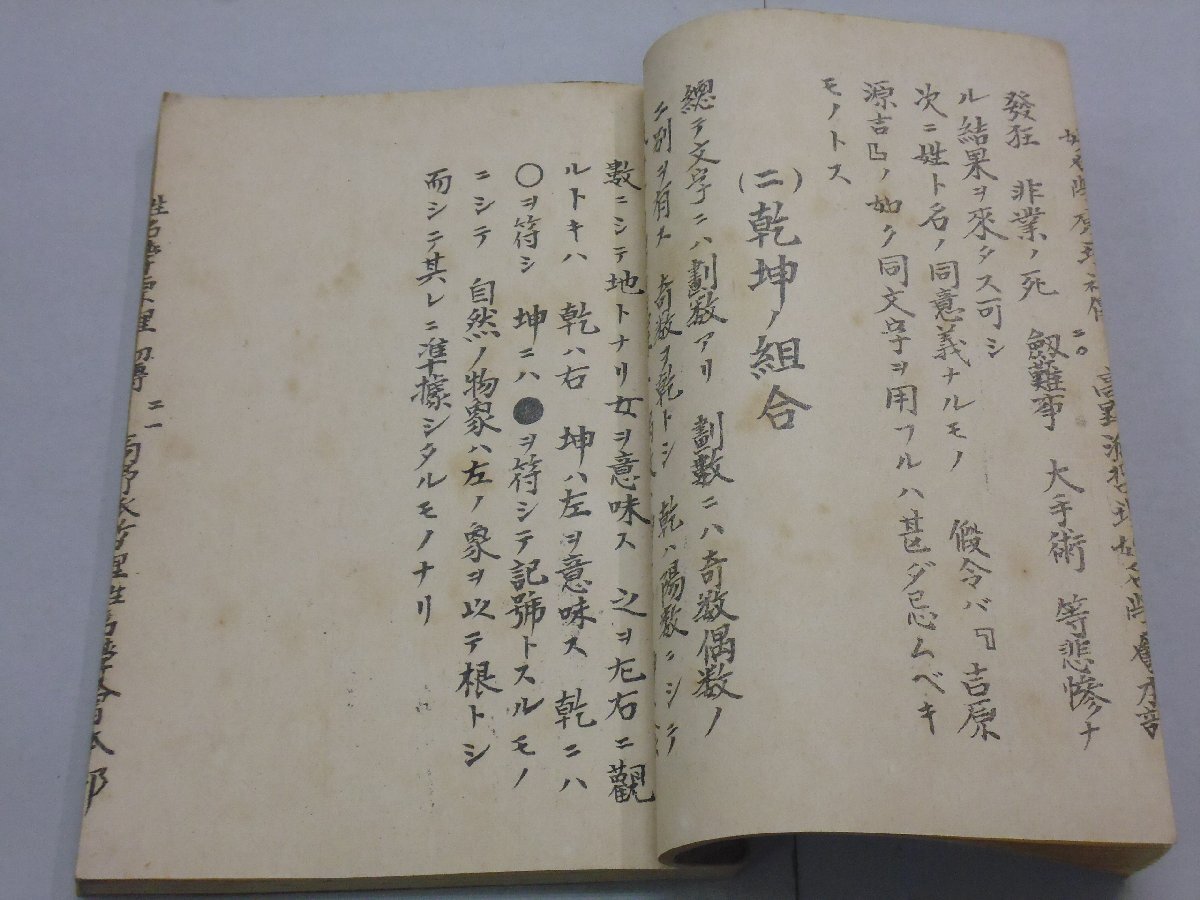 發狂 非業ノ死 劔難事 大手術 等悲慘ナ
ル結果ヲ來タス可シ
次ニ姓ト名ノ同意義ナルモノ 假令バ『吉原
源吉』ノ如ク同文字ヲ用フルハ甚ダ忌ムベキ
モノトス
(二)乾坤ノ組合
總テ文字ニハ劃数アリ 劃數ニハ奇数偶数ノ
二別ヲ有ス 奇数ヲ乾トシ 乾ハ陽数ニシテ
數ニシテ地トナリ女ヲ意味ス 之ヲ左右ニ觀
ルトキハ 乾ハ右 坤ハ左ヲ意味ス 乾ニハ
○ヲ符シ 坤ニハ●ヲ符シテ記號トスルモノ
ニシテ 自然ノ物象ハ左ノ象ヲ以テ根トシ
而シテ其レニ準據シタルモノナリ
二一